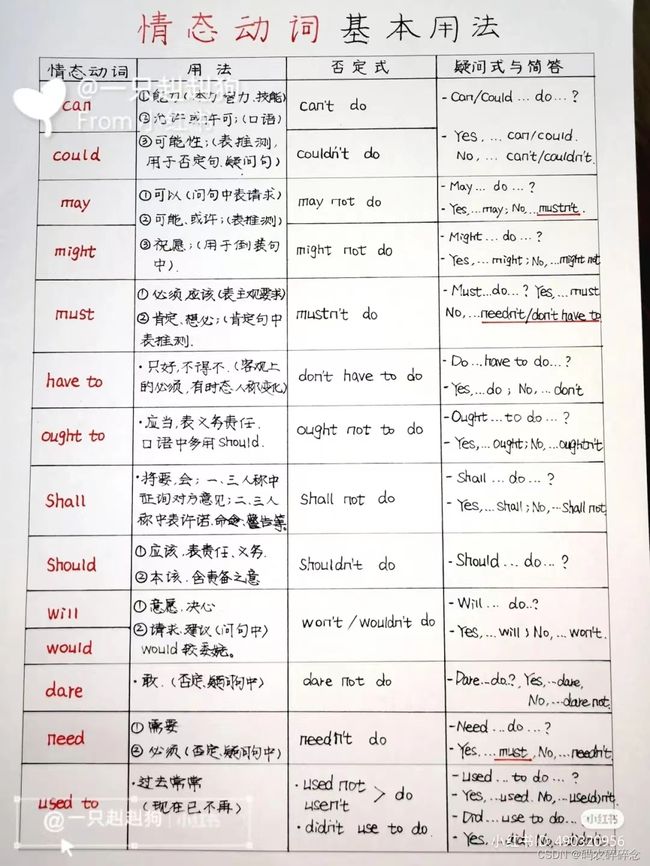 情态动词 基本用法
情态动词 用法 否定式 疑问式与简答
can
could
①能力(本力智力、技能)
②允许或许可;(口语)
③可能性;(表推测,
用于否定句、疑问句)
can't do
couldn't do
- Can/Could ... do ... ?
- Yes, ... can/could.
No, ... can't/couldn't.
may
might
①可以(问句中表请求)
②可能、或许;(表推测)
③祝愿;(用于倒装句
中).
may not do
might not do
- May ... do ... ?
- Yes, ... may; No, ... mustn't.
- Might ... do ... ?
- Yes, ... might; No, ... might not
must
①必须,应该(表主观要求)
②肯定、想必;(肯定句中
表推测.
mustn't do
- Must...do...? Yes, ... must
No, ... needn't/don't have to
have to
·只好,不得不.(客观上
的必须,有时态人称变化)
don't have to do
- Do ...have to do...?
- Yes,...do ; No, ...don't
ought to
·应当,表义务责任.
口语中多用should.
ought not to do
- Ought ...to do ... ?
- Yes,...ought; No, ...oughtn't
Shall
·将要,会;一、三人称中
征询对方意见;二、三人
称中表许诺、命令、警告等。
Shall not do
- Shall ... do ... ?
- Yes,...shall; No,...Shall not
Should
①应该,表责任、义务.
②本该.含责备之意
Shouldn't do
- Should ... do ... ?
will
would
①意愿、决心
②请求、建议(问句中)
would较委婉。
won't /wouldn't do
- Will ... do..?
- Yes, ... will; No, ... won't.
dare
·敢.(否定、疑问句中)
dare not do
- Dare...do.?, Yes,...dare,
No, ...dare not.
need
①需要
②必须(否定、疑问句中)
needn't do
- Need ...do ... ?
- Yes, ...must, No, ...needn't.
used to
·过去常常
(现在已不再)
· used not
usen't > do
· didn't use to do
- used ...to do ... ?
- Yes,...used. No,...usedn't.
- Did...use to do...?
- Yes, ...did. No, ...didn't.
@一只赳赳狗
From 小红书
@一只赳赳狗 小红书
小红书
CSDN @码农碎碎念